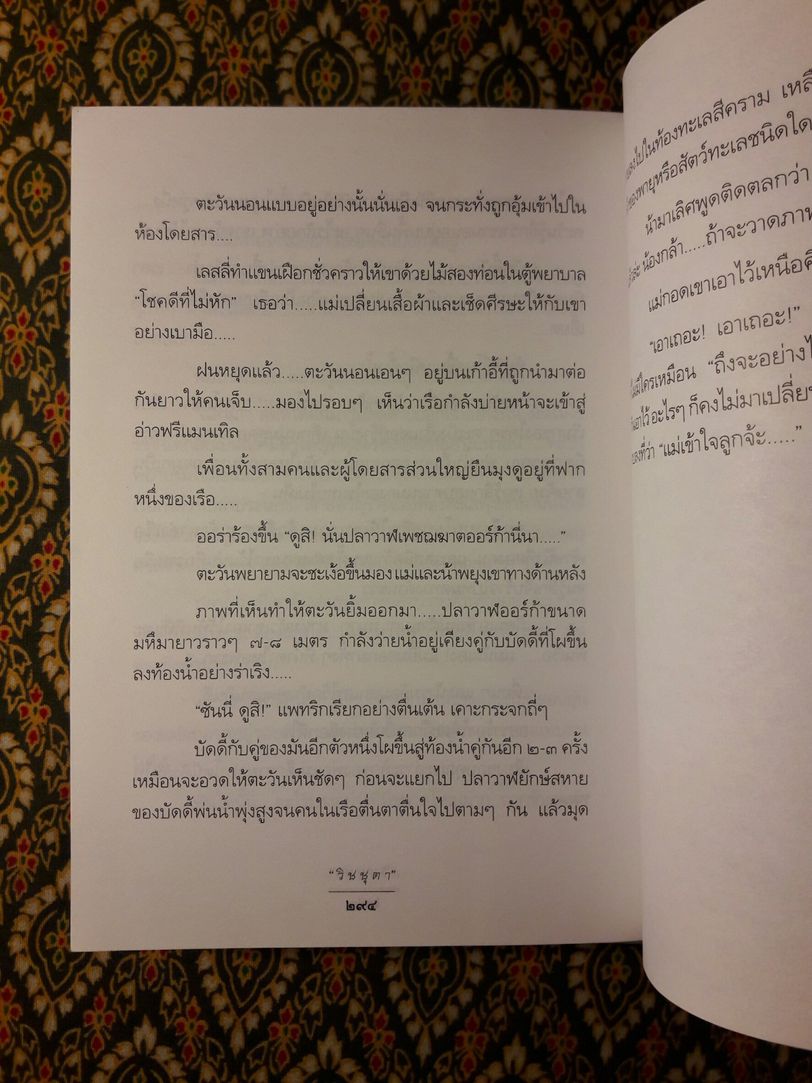 ตะวันนอนแบบอยู่อย่างนั้นนั่นเอง จนกระทั่งถูกอุ้มเข้าไปใน
ห้องโดยสาร....
เลสลี่ทำแขนเฝือกชั่วคราวให้เขาด้วยไม้สองท่อนในตู้พยาบาล
“โชคดีที่ไม่หัก” เธอว่า.....แม่เปลี่ยนเสื้อผ้าและเช็ดศีรษะให้กับเขา
อย่างเบามือ.....
ฝนหยุดแล้ว.....ตะวันนอนเอนๆ อยู่บนเก้าอี้ที่ถูกนำมาต่อ
กันยาวให้คนเจ็บ.....มองไปรอบๆ เห็นว่าเรือกำลังบ่ายหน้าจะเข้าสู่
อ่าวฟรีแมนเทิล
เพื่อนทั้งสามคนและผู้โดยสารส่วนใหญ่ยืนมุงดูอยู่ที่ฟาก
หนึ่งของเรือ.....
ออร่าร้องขึ้น “ดูสิ! นั่นปลาวาฬเพชฌฆาตออร์ก้านี่นา.....”
ตะวันพยายามจะชะเง้อขึ้นมอง แม่และน้าพยุงเขาทางด้านหลัง
ภาพที่เห็นทำให้ตะวันยิ้มออกมา.....ปลาวาฬออร์ก้าขนาด
มหึมายาวราวๆ ๗-๘ เมตร กำลังว่ายน้ำอยู่เคียงคู่กับบัดดี้ที่โผขึ้น
ลงท้องน้ำอย่างร่าเริง.....
“ซันนี่ ดูสิ!” แพทริกเรียกอย่างตื่นเต้น เคาะกระจกถี่ๆ
บัดดี้กับคู่ของมันอีกตัวหนึ่งโผขึ้นสู่ท้องน้ำคู่กันอีก ๒-๓ ครั้ง
เหมือนจะอวดให้ตะวันเห็นชัดๆ ก่อนจะแยกไป ปลาวาฬยักษ์สหาย
ของบัดดี้พ่นน้ำพุ่งสูงจนคนในเรือตื่นตาตื่นใจไปตามๆ กัน แล้วมุด
“วิชชุตา”
๒๙๔
ไปในท้องทะเลสีคราม
พายุหรือสัตว์ทะเลชนิดใด
น้ามาเลิศพูดติดตลกว่า
น้องกล้า.....ถ้าจะวาดภาพ
แม่กอดเขาเอาไว้เหนือ
“เอาเถอะ! เอาเถอะ!”
ใครเหมือน “ถึงจะอย่าง
อะไรๆ ก็คงไม่มา
ที่ว่า “แม่เข้าใจลูกจ้ะ.....”